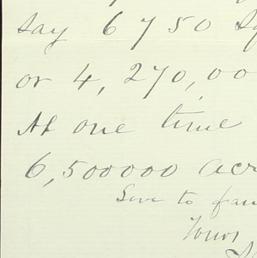 say 6750 Sq
or 4,270,00
At one time
6,500000 acr
Love to fam
Yours